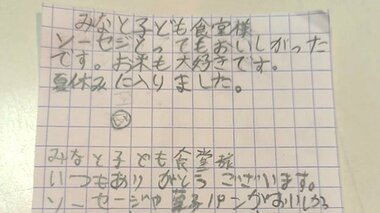 みなと子ども食堂様
ソーセジとってもおいしかった
です。お米も大好きです。
夏休みに入りました。
みなと子ども食堂様
いつもありがとうございます。
ソーセージや菓子パンがおいしかっ